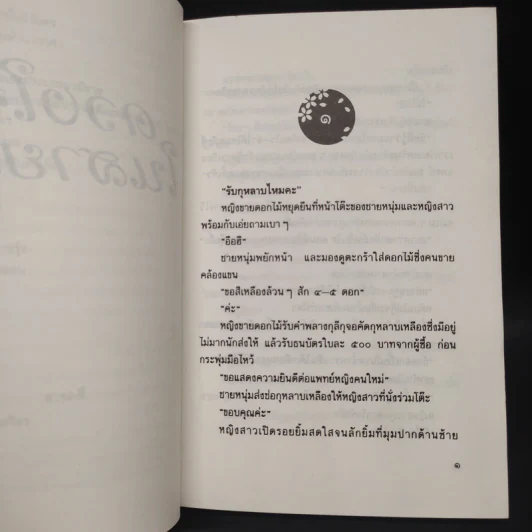 ๑
"รับกุหลาบไหมคะ"
หญิงขายดอกไม้หยุดยืนที่หน้าโต๊ะของชายหนุ่มและหญิงสาว
พร้อมกับเอ่ยถามเบา ๆ
"อือฮึ"
ชายหนุ่มพยักหน้า และมองดูตะกร้าใส่ดอกไม้ซึ่งคนขาย
คล้องแขน
"ขอสีเหลืองล้วน ๆ สัก ๔–๕ ดอก"
"ค่ะ"
หญิงขายดอกไม้รับคำพลางกุลีกุจอคัดกุหลาบเหลืองซึ่งมีอยู่
ไม่มากนักส่งให้ แล้วรับธนบัตรใบละ ๕๐๐ บาทจากผู้ซื้อ ก่อน
กระพุ่มมือไหว้
"ขอแสดงความยินดีต่อแพทย์หญิงคนใหม่"
ชายหนุ่มส่งช่อกุหลาบเหลืองให้หญิงสาวที่นั่งร่วมโต๊ะ
"ขอบคุณค่ะ"
หญิงสาวเปิดรอยยิ้มสดใสจนลักยิ้มที่มุมปากด้านซ้าย
๑